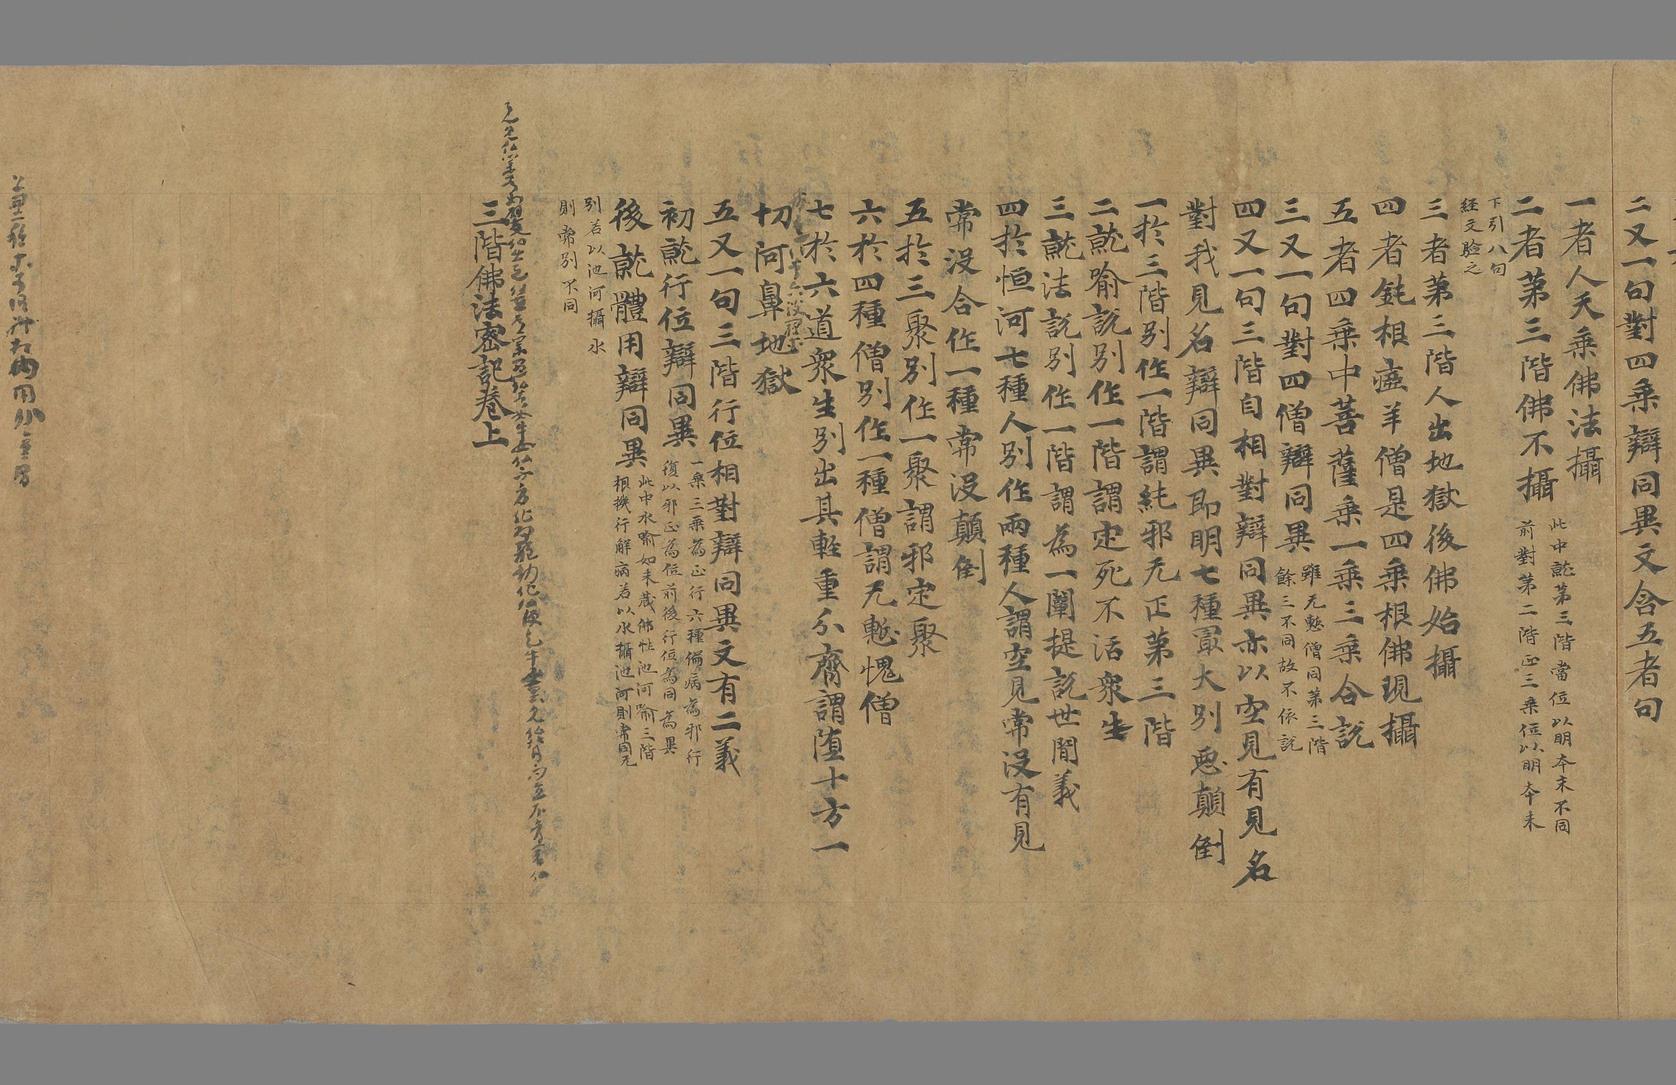 二又一句對四乘辯同異文含五者句
一者人天乘佛法攝
二者第三階佛不攝 此中就第三階當位以明本末不同
前對第二階正三乘位以明本末
下引八句
経文驗之
三者第三階人出地獄後佛始攝
四者鈍根瘂羊僧是四乘根佛現攝
五者四乘中菩薩乘一乘三乘合説
三又一句對四僧辯同異 雖无慙僧同第三階
餘三不同故不依説
四又一句三階自相對辯同異亦以空見有見名
對我見名辯同異即明七種冣大別惡顛倒
一於三階別作一階謂純邪无正第三階
二就喻説別作一階謂定死不活衆生
三就法説別作一階謂為一闡提説世間義
四於恒河七種人別作兩種人謂空見常没有見
常没合作一種常没顛倒
五於三聚別作一聚謂邪定聚
六於四種僧別作一種僧謂无慙愧僧
七於六道衆生別出其軽重分齊謂墮十方一
切阿鼻地獄
五又一句三階行位相對辯同異文有二義
初就行位辯同異 一乘三乘為正行六種偏病為邪行
復以邪正為位前後行位為同為異
後就體用辯同異 此中水喻如来蔵佛性池河喻三階
根機行解病若以水攝池河則常同无
別若以池河攝水
則常別不同
三階佛法密記卷上